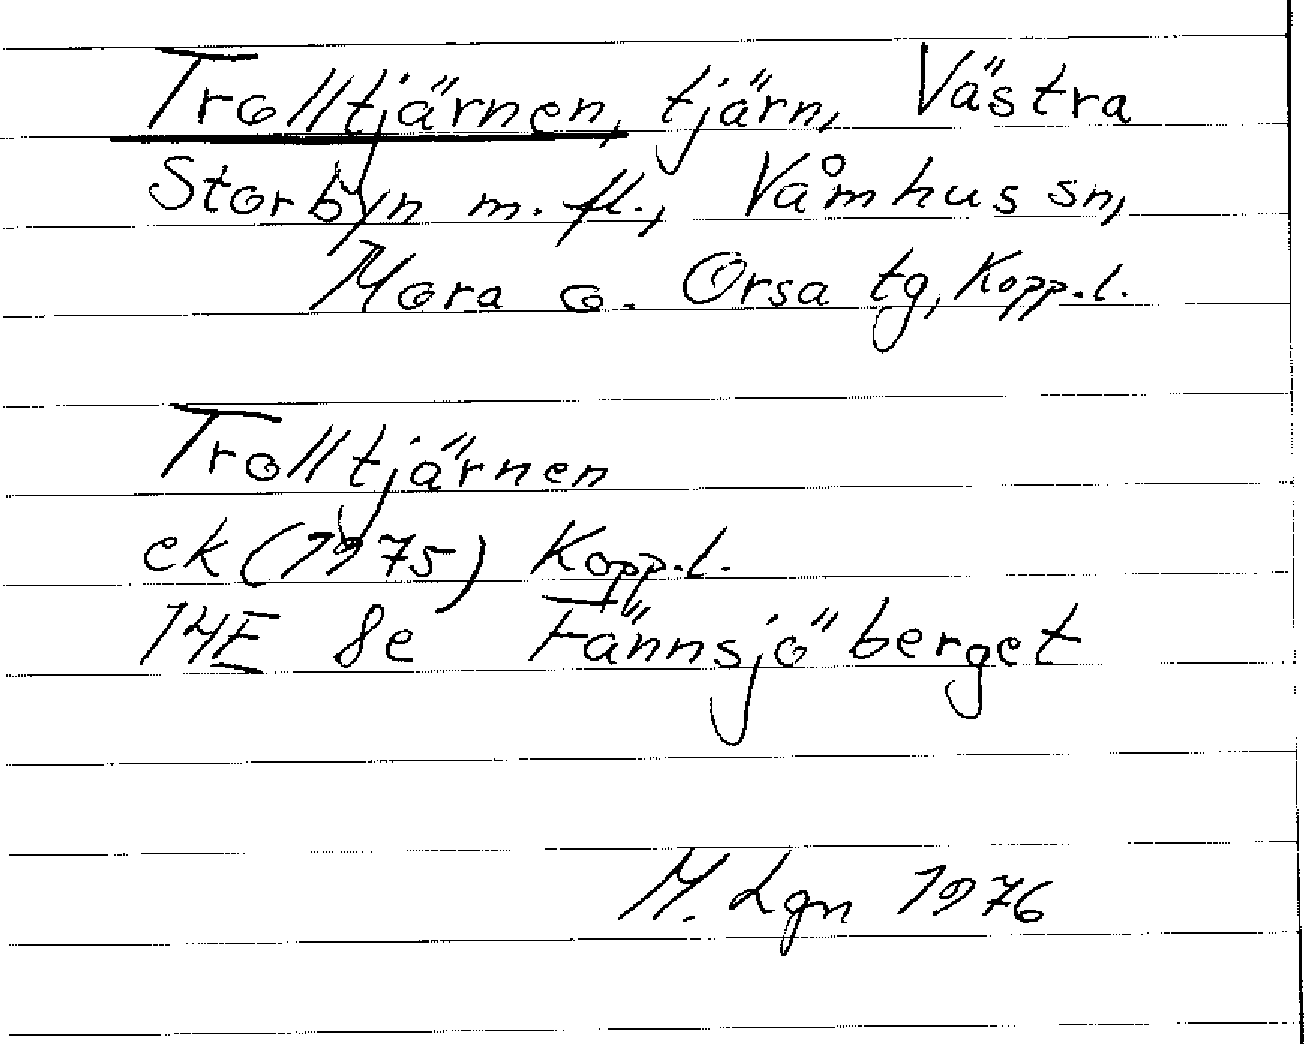 Trolltjärnen, tjärn, Västra
Storbyn m. fl., Våmhus sn,
Mora o. Orsa tg, Kopp.l.
Trolltjärnen
ek (1975) Kopp.l.
14E 8e Fännsjöberget
M. Lgn 1976